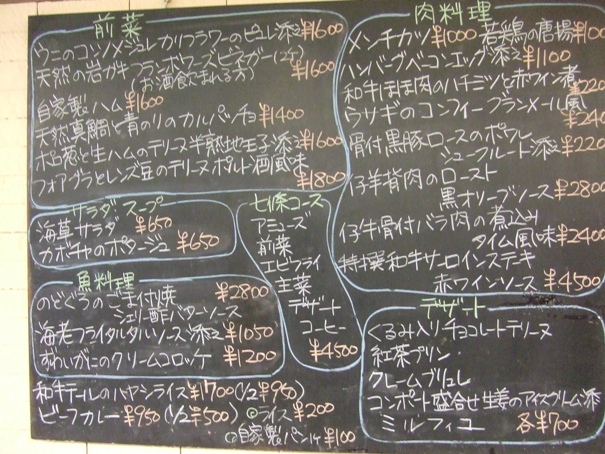 前菜
ウニのコンソメジュレカリフラワーのピュレ添え ¥1600
天然の岩ガキ フランボワーズビネガー(2ケ)
(お酒飲まれる方) ¥1600
自家製ハム ¥1600
天然真鯛と青のりのカルパッチョ ¥1400
ポロ葱と生ハムのテリーヌ半熟地玉子添え ¥1600
フォアグラとレンズ豆のテリーヌポルト酒風味
¥1800
サラダ スープ
海草サラダ ¥650
カボチャのポタージュ ¥650
魚料理
のどぐろのごま付焼 ¥2800
シェリー酢バターソース
海老フライタルタルソース添え ¥1050
ずわいがにのクリームコロッケ ¥1200
七條コース
アミューズ
前菜
エビフライ
主菜
デザート
コーヒー
¥4500
肉料理
メンチカツ ¥1000 若鶏の唐揚 ¥100
ハンバーグベーコンエッグ添え ¥1100
和牛ほほ肉のハチミツと赤ワイン煮
¥220
ウサギのコンフィープランメール風
¥240
骨付黒豚ロースのポワレ
ジューフルード添え ¥220
仔羊背肉のロースト
黒オリーブソース ¥2800
仔牛骨付バラ肉の煮込み
タイム風味 ¥2400
特撰和牛サーロインステーキ
赤ワインソース ¥4500
デザート
くるみ入りチョコレートテリーヌ
紅茶プリン
クレームブリュレ
コンポート盛合せ生姜のアイスクリーム添
ミルフィユ 各¥700
和牛テールのハヤシライス ¥1700(1/2 ¥950)
ビーフカレー ¥950(1/2 ¥500) ライス ¥200
自家製パン1ケ ¥100